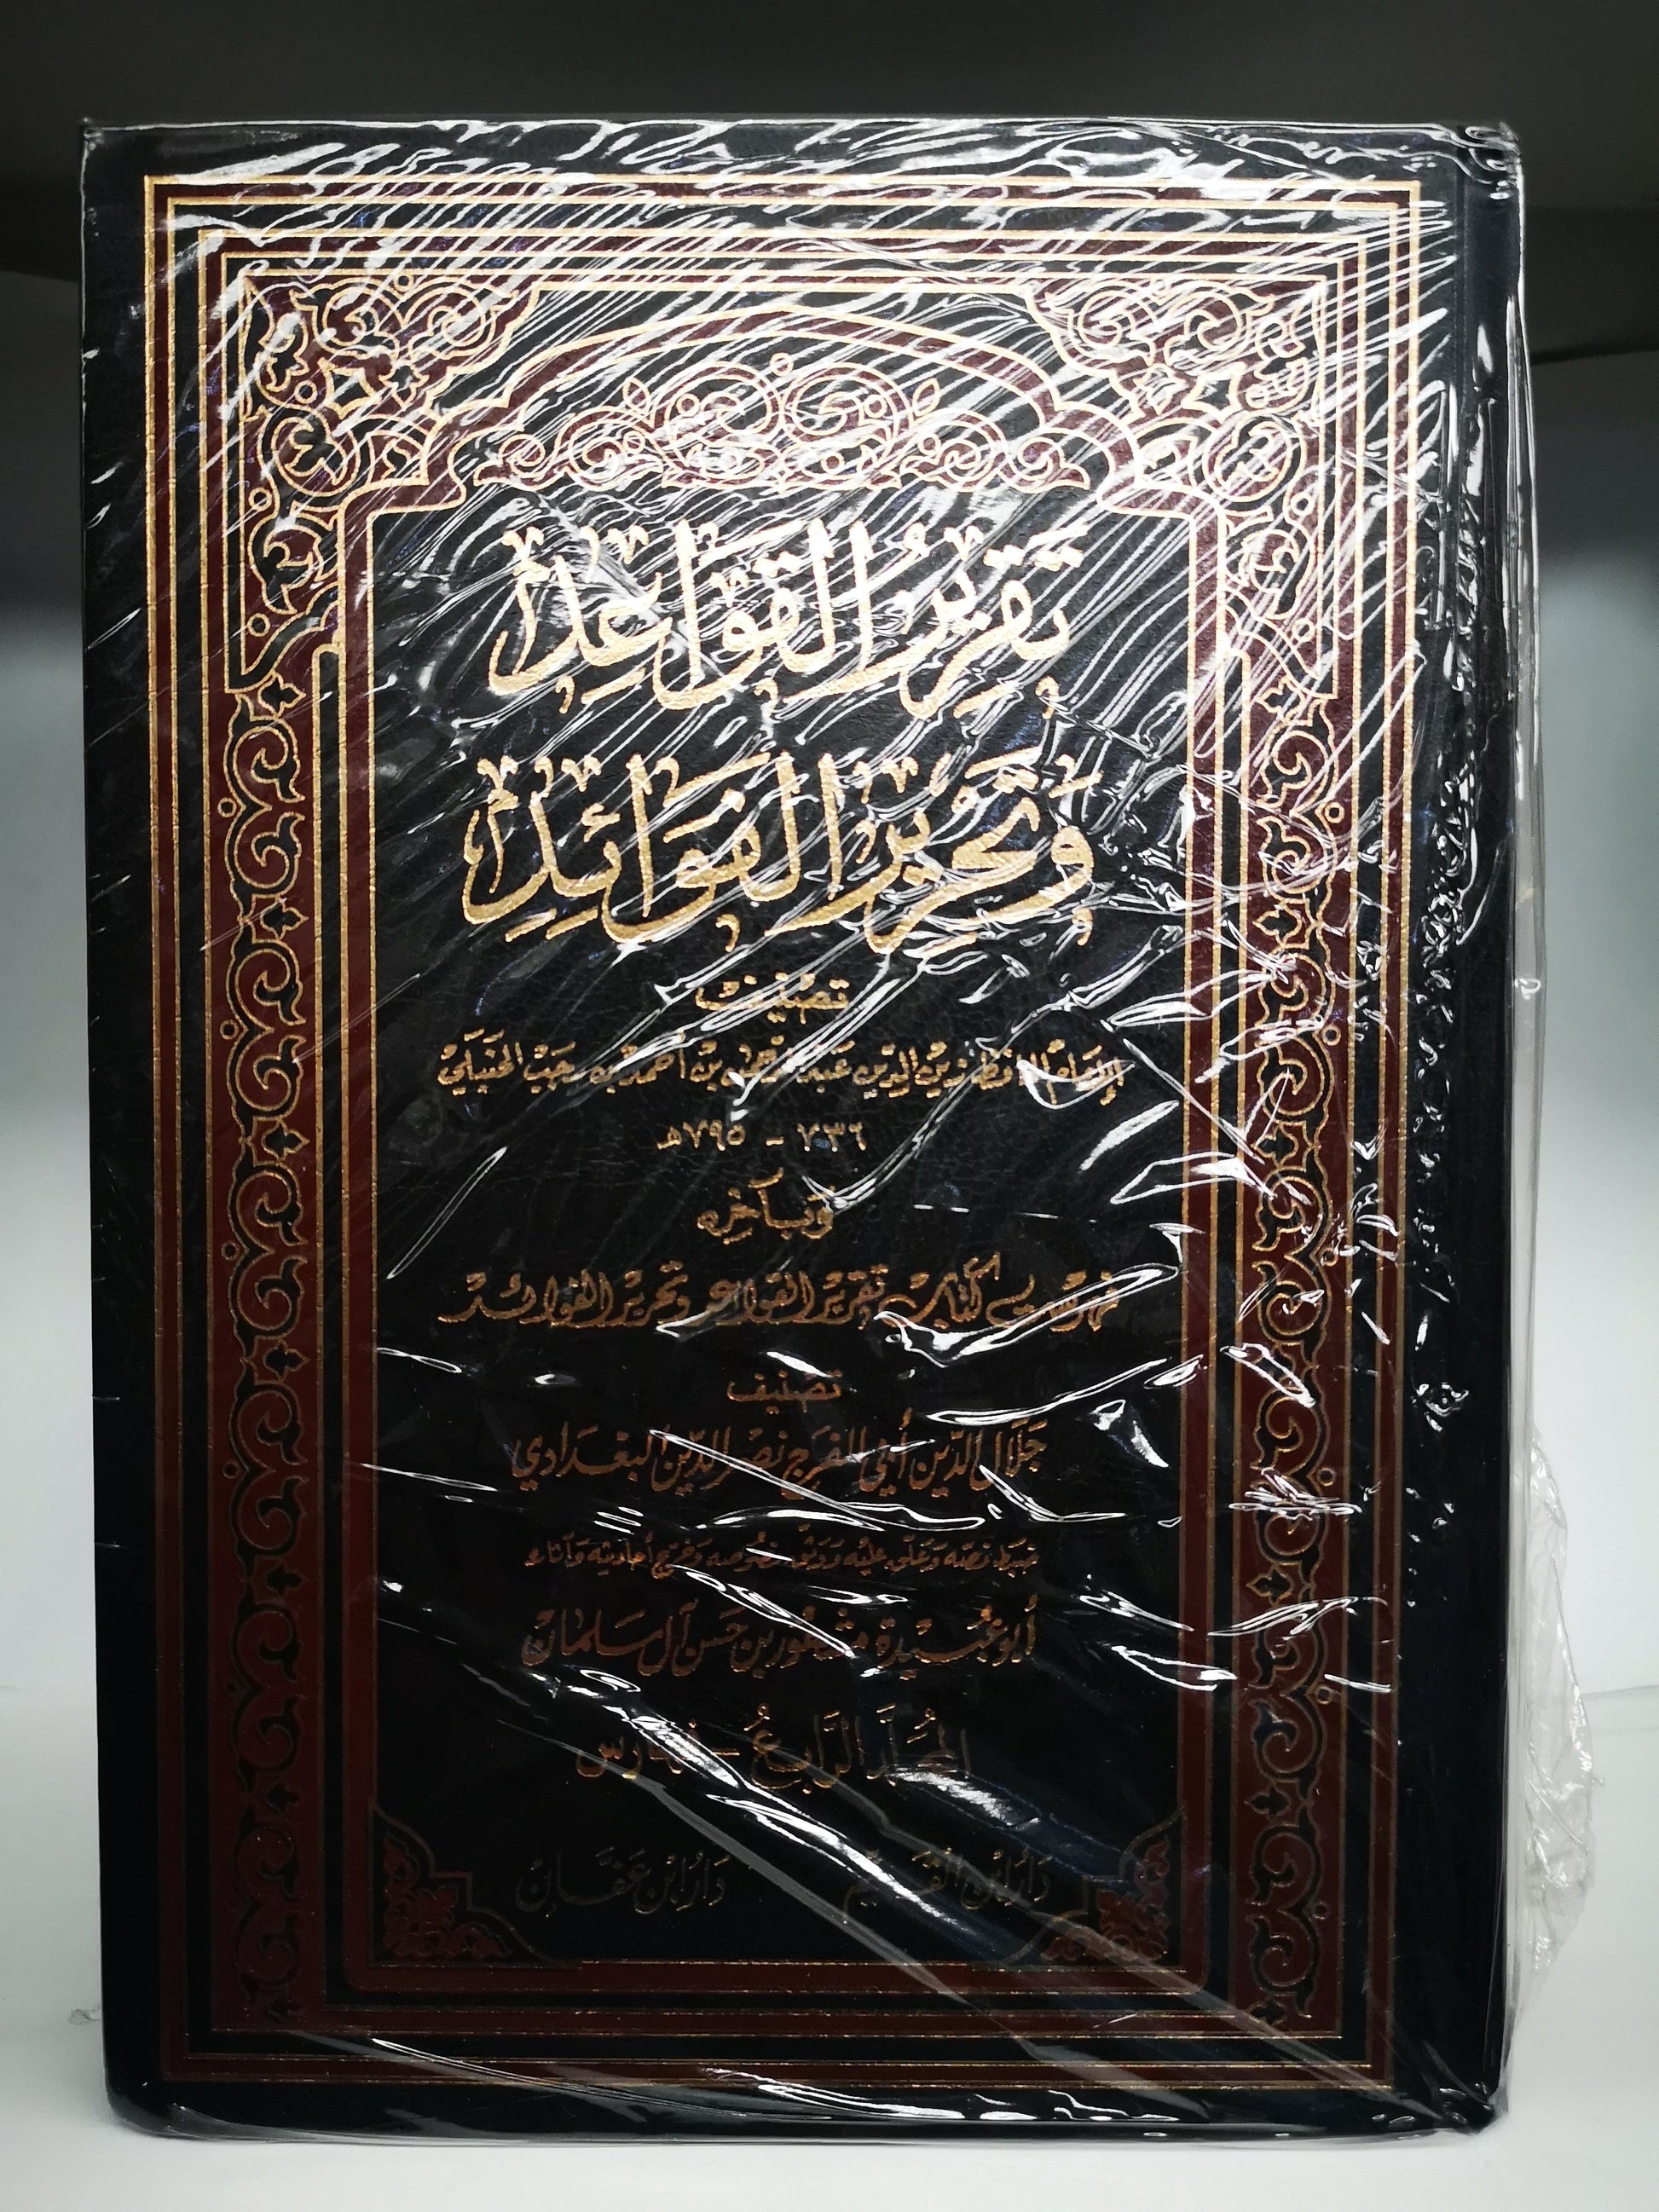 تَقْرِيرُ القَوَاعِدِ
وَتَحْرِيرُ الفَوَائِدِ
تصنيف
الإمام الحافظ زين الدين عبد الرحمن بن أحمد بن رجب الحنبلي
٧٣٦ - ٧٩٥هـ
وبآخره
فهرست كتاب تقرير القواعد وتحرير الفوائد
تصنيف
جلال الدين أبي الفرج نصر الدين البغدادي
ضبط نصه وعلق عليه ووثق نصوصه وخرج أحاديثه وآثاره
أبو عبيدة مشهور بن حسن آل سلمان
المجلد الرابع - فهارس
دار ابن القيم دار ابن عفان